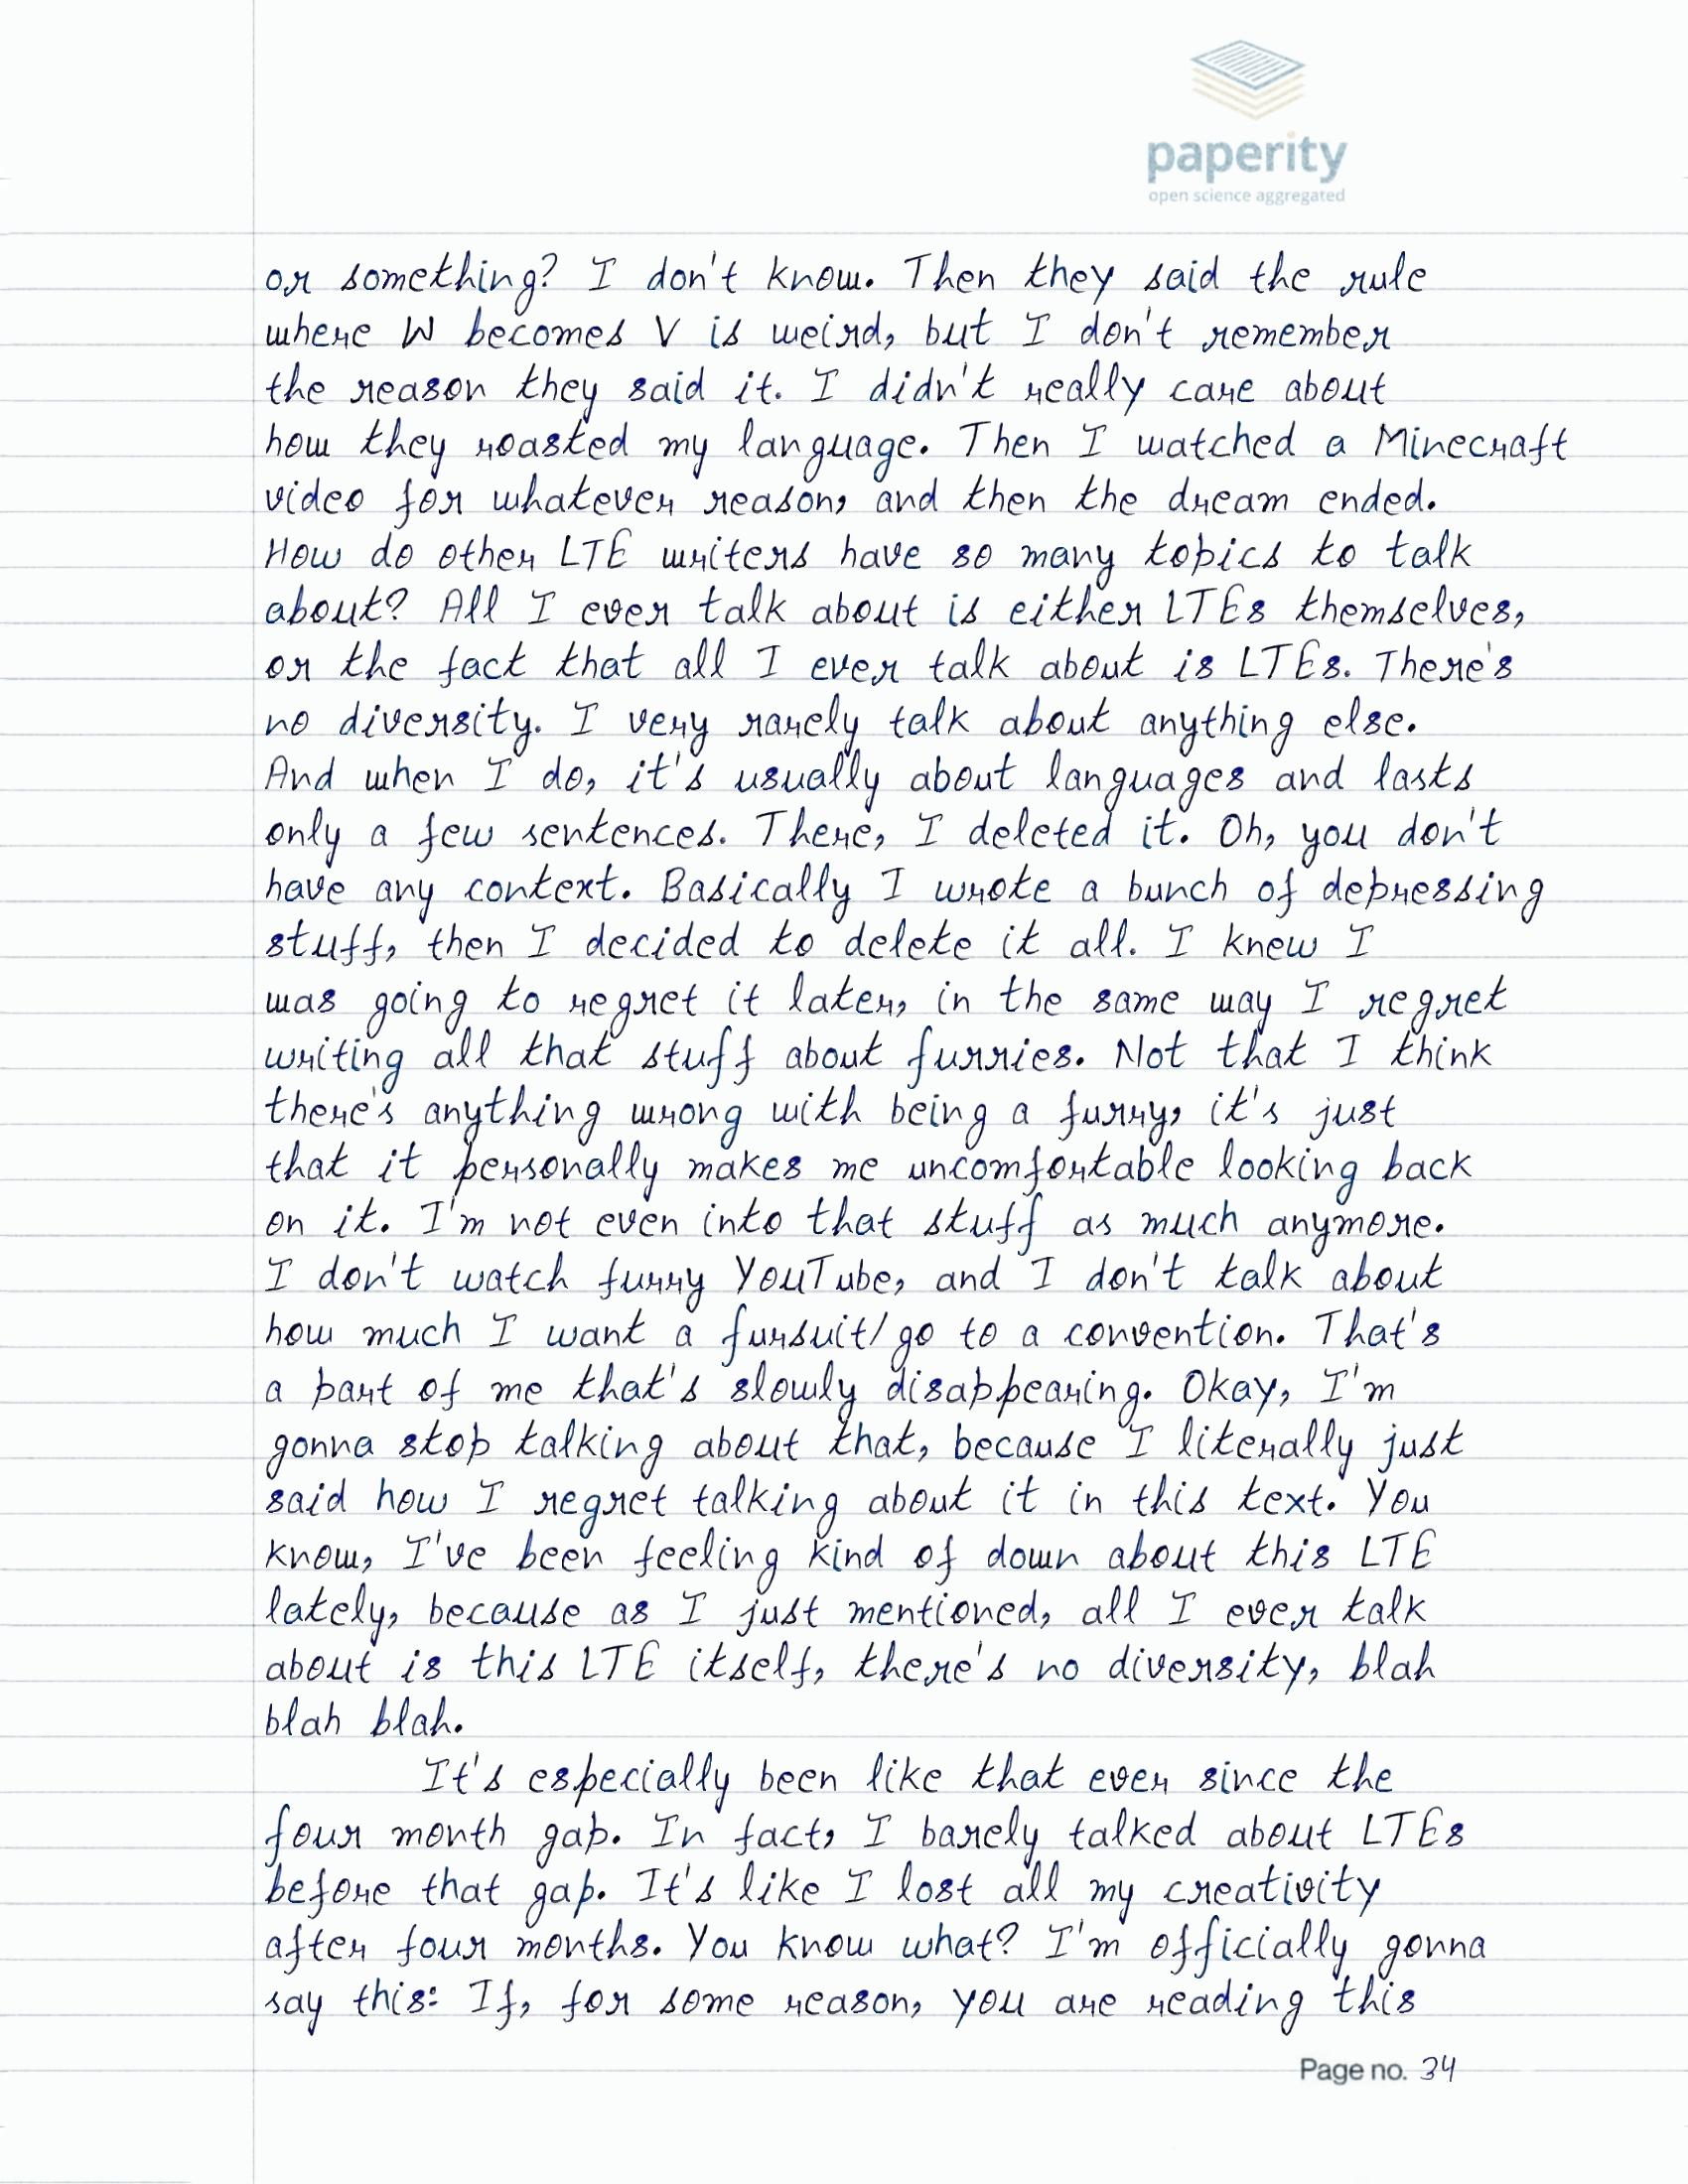 paperity
open science aggregated
or something? I don't know. Then they said the rule
where W becomes V is weird, but I don't remember
the reason they said it. I didn't really care about
how they roasted my language. Then I watched a Minecraft
video for whatever reason, and then the dream ended.
How do other LTE writers have so many topics to talk
about? All I ever talk about is either LTEs themselves,
or the fact that all I ever talk about is LTEs. There's
no diversity. I very rarely talk about anything else.
And when I do, it's usually about languages and lasts
only a few sentences. There, I deleted it. Oh, you don't
have any context. Basically I wrote a bunch of depressing
stuff, then I decided to delete it all. I knew I
was going to regret it later, in the same way I regret
writing all that stuff about furries. Not that I think
there's anything wrong with being a furry, it's just
that it personally makes me uncomfortable looking back
on it. I'm not even into that stuff as much anymore.
I don't watch furry YouTube, and I don't talk about
how much I want a fursuit/go to a convention. That's
a part of me that's slowly disappearing. Okay, I'm
gonna stop talking about that, because I literally just
said how I regret talking about it in this text. You
know, I've been feeling kind of down about this LTE
lately, because as I just mentioned, all I ever talk
about is this LTE itself, there's no diversity, blah
blah blah.
It's especially been like that ever since the
four month gap. In fact, I barely talked about LTEs
before that gap. It's like I lost all my creativity
after four months. You know what? I'm officially gonna
say this: If, for some reason, you are reading this
Page no. 34